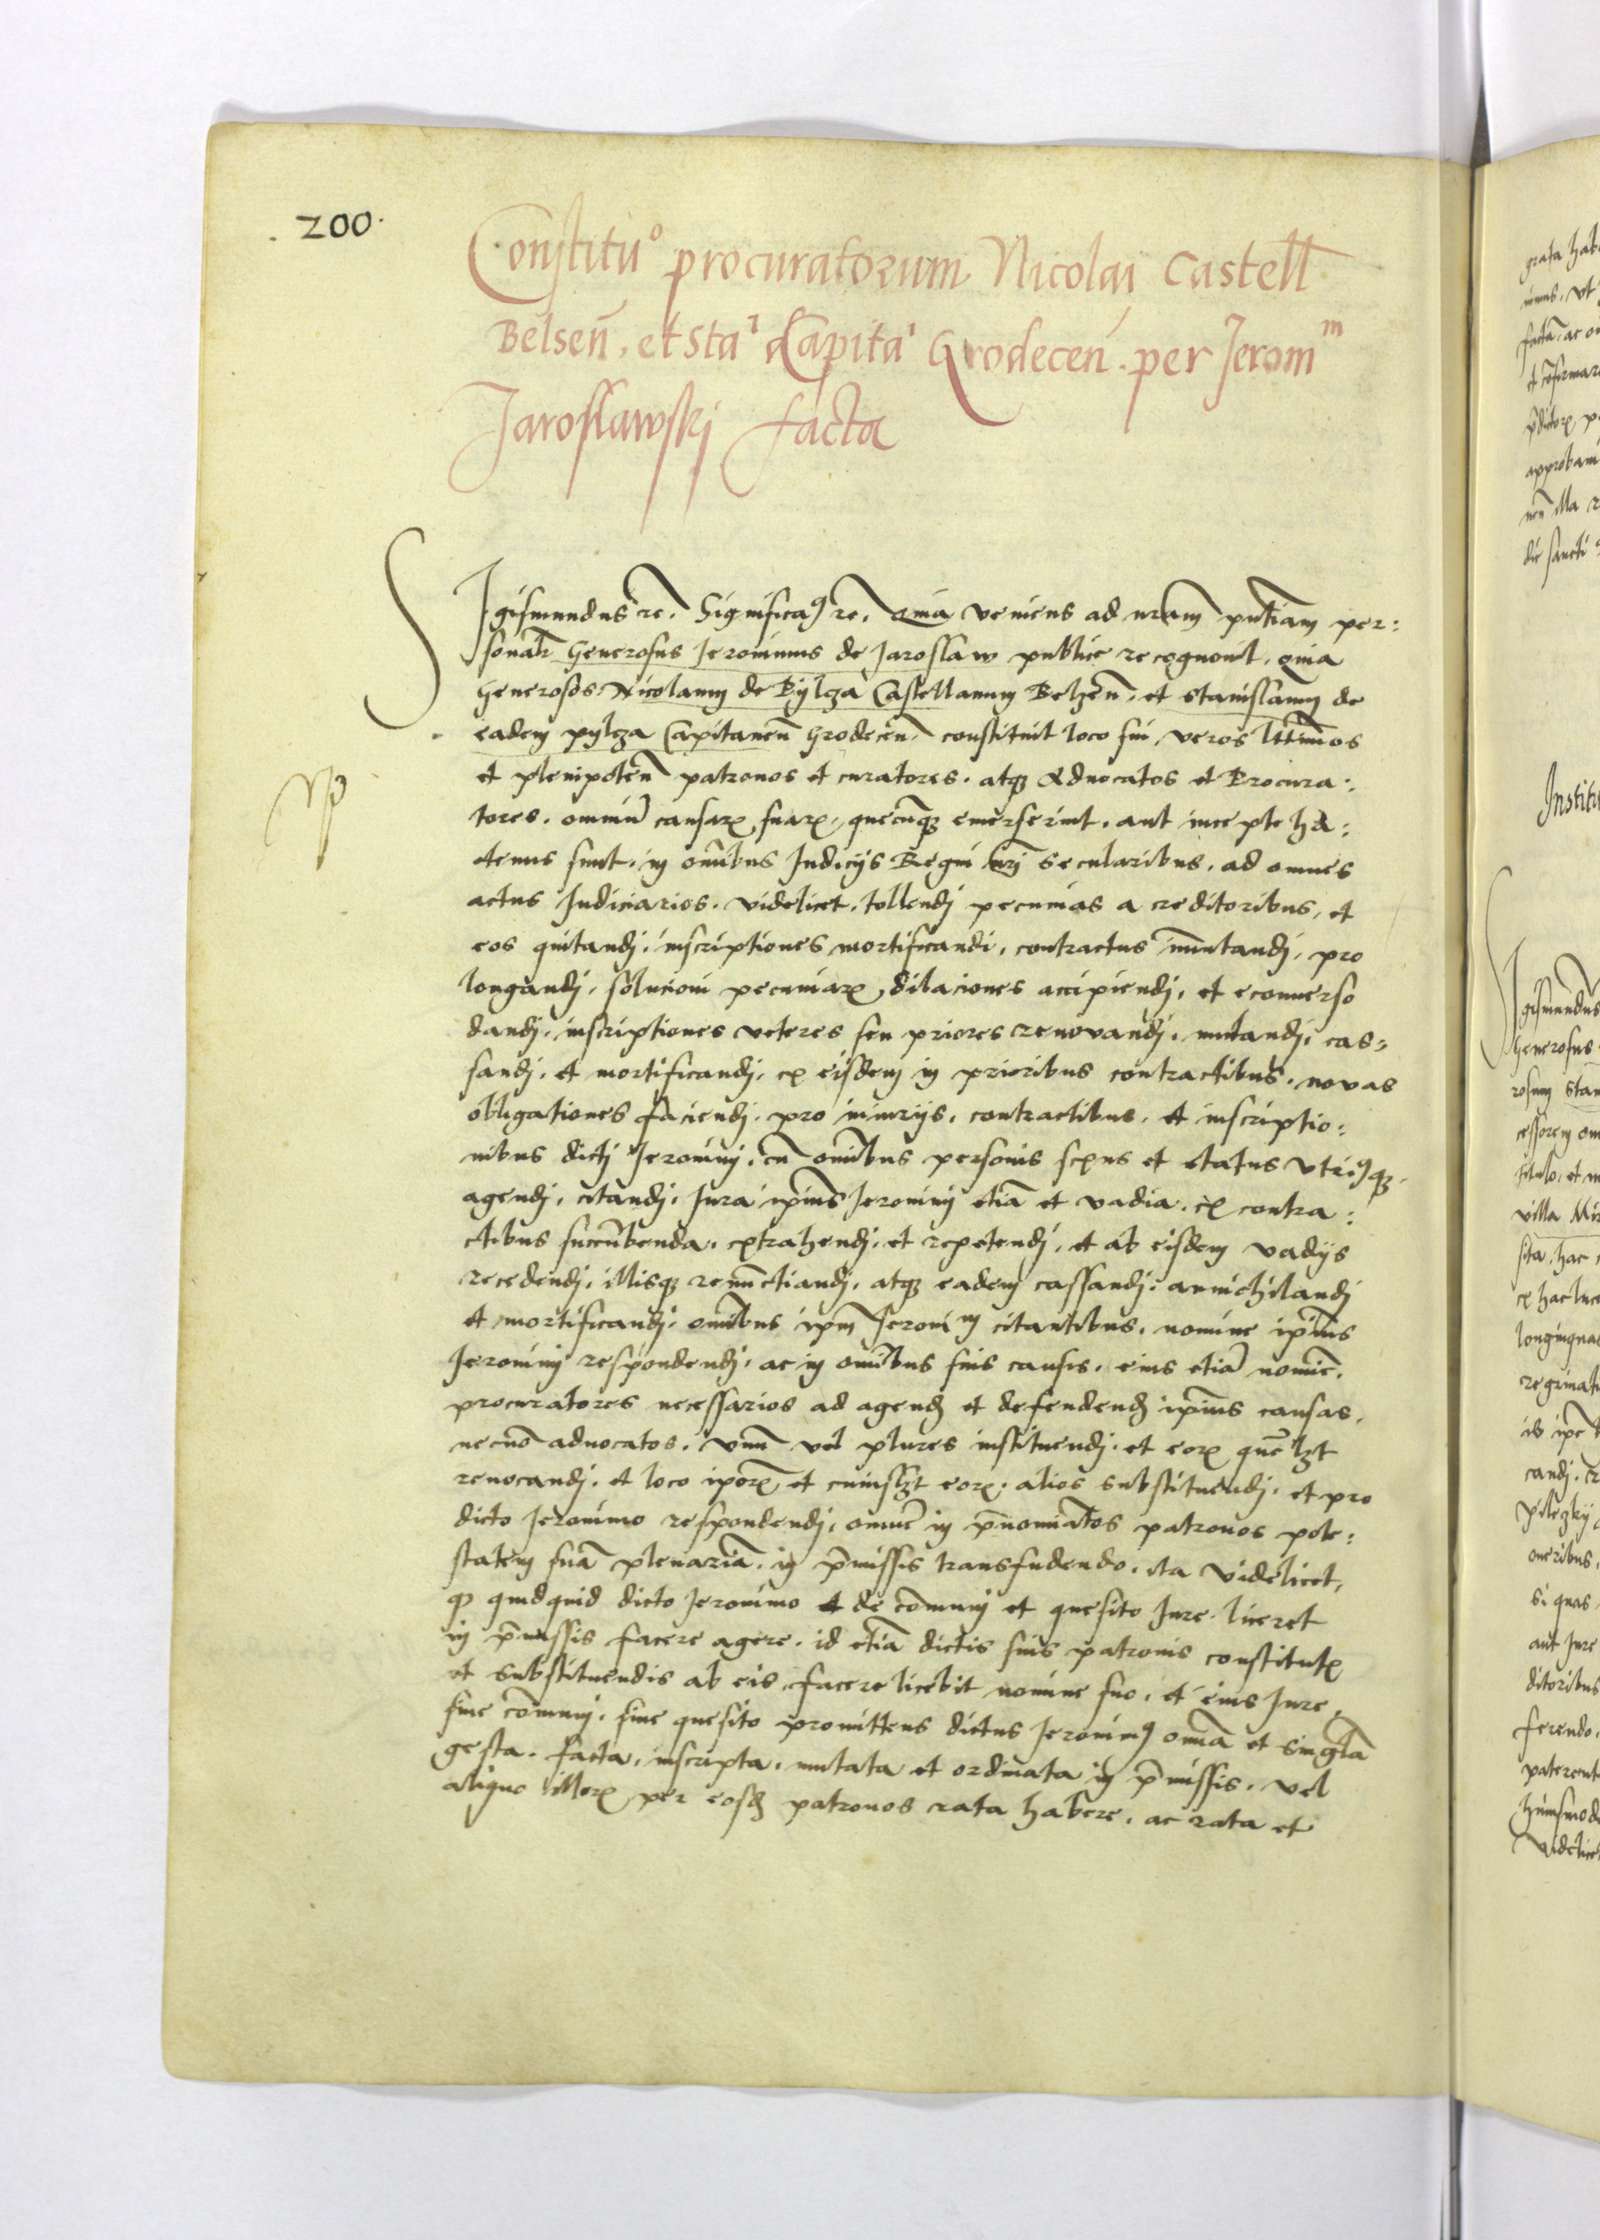 . 200.
Constituº procuratorum Nicolai Castell
Belseñ, et Staⁱ Capitaⁱ Grodeceñ. per Jeromᵐ
Jarosslawskj facta
SIgismundus rc. Significaꝯ rc. Quia veniens ad nram pntiam per:
sonalr Generosus Jeronimus de Jaroslaw publice recognovit, quia
Generosos Nicolaum de Pylcza Castellanum Belzeñ. et Stanislaum de
eadem pylcza Capitaneu Grodeceñ. constituit loco sui, veros lttimos
et plenipoteñ patronos et curatores. atqꝫ Advocatos et Procura:
tores. omniu causaꝝ suaꝝ, quecuqꝫ emerserint. aut incepte ha:
ctenus sunt, in omibus Judicijs Regni nri Secularibus. ad omnes
actus Judiciarios. videlicet. tollendj pecunias a creditoribus, et
eos quitandj. inscriptiones mortificandi, contractus inmutandj, pro
longandj. solucioni pecuniaꝝ, dilaciones accipiendj, et econuerso
dandj. inscriptiones veteres seu priores renovandj. mutandj, cas:
sandj. et mortificandj. ex eisdem in prioribus contractibus. novas
obligationes faciendj. pro iniurijs, contractibus. et inscriptio:
nibus dictj Jeronimj. cu omibus personis sexus et status vtriꝯqꝫ.
agendj. citandj. Jura ipius Jeronimj etia et vadia. ex contra:
ctibus succubenda. extrahendj. et repetendj, et ab eisdem vadijs
recedendj. illisqꝫ renuctiandj. atqꝫ eadem cassandj. annichilandj
et mortificandj. omibus ipm Jeroniᵐ citantibus. nomine ipius
Jeronimj respondendj. ac in omibus suis causis. eius etia nomie.
procuratores necessarios ad agendꝫ et defendendꝫ ipius causas.
necno aduocatos. vnu vel plures instituendj. et eoꝝ quelꝫt
revocandj. et loco ipoꝝ et cuiuslꝫt eoꝝ. alios substituendj. et pro
dicto Jeronimo respondendj. omne in pnomiatos patronos pote:
statem sua plenaria. in pmissis transfudendo. ita videlicet,
qꝫ quidquid dicto Jeronimo et de comunj et quesito Jure. liceret
in pmissis facere agere. id etia dictis suis patronis constitutꝭ
et Substituendis ab eis, facere licebit nomine suo. et eius Jure,
siue comunj. siue quesito promittens dictus Jeronimꝯ omia et singla
gesta. facta, inscripta, mutata et ordinata in pmissis. vel
aliquo illoꝝ per eosdꝫ patronos rata habere. ac rata et